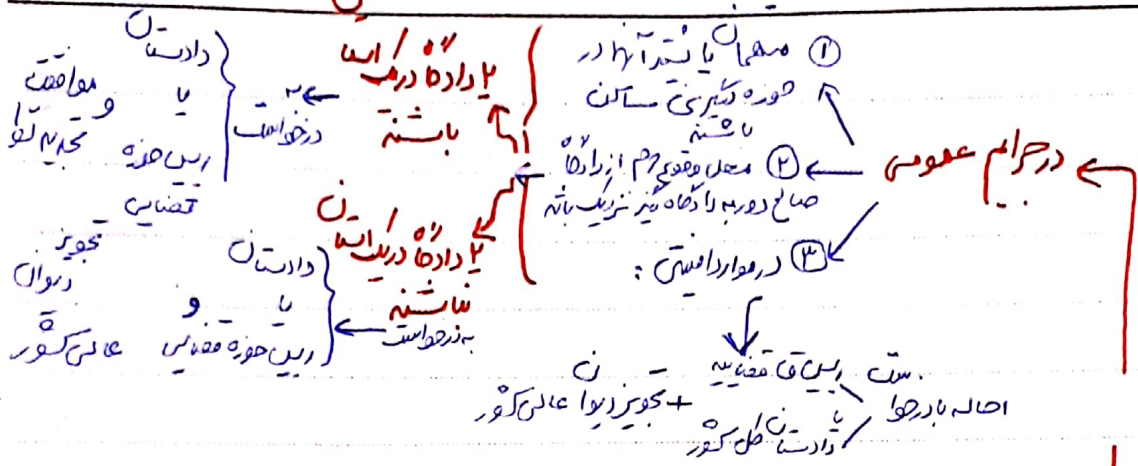 در جرایم عمومی
① متهمان یا بیشتر آنها در
حوزه دیگری ساکن
باشند
② محل وقوع جرم از دادگاه
صالح دور به دادگاه دیگر نزدیک باشد
③ در موارد امنیتی :
احاله با درخواست رییس قوه قضاییه
یا
دادستان کل کشور
+ تجویز دیوان عالی کشور
۲ دادگاه در یک استان
باشند
به درخواست
دادستان
یا
رییس حوزه
قضایی
و
موافقت
تجدید نظر
۲ دادگاه در یک استان
نباشند
به درخواست
دادستان
یا
رییس حوزه قضایی
و
تجویز
دیوان
عالی کشور